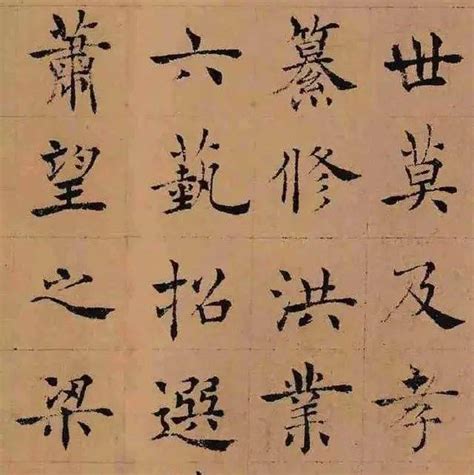 世莫及孝
纂修洪業
六蓺招選
蕭望之梁